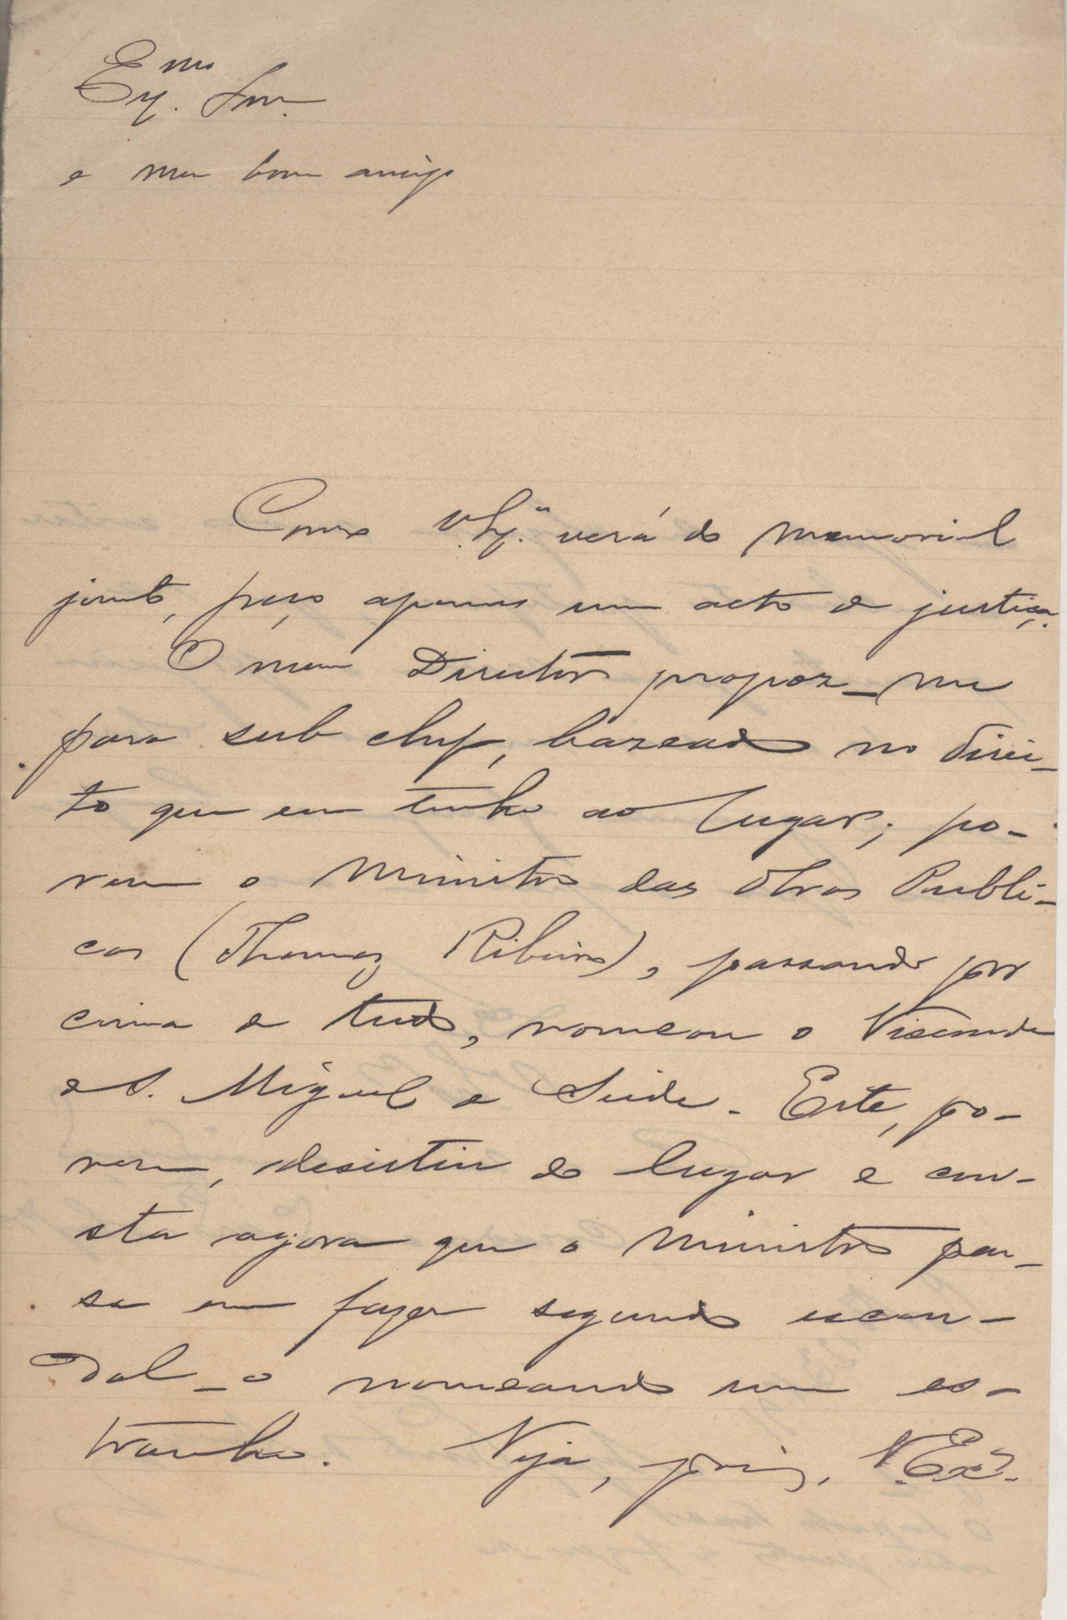 Exmo. Snr.
e meu bom amigo
Como V. Ex.ª verá do memorial
junto, peço apenas um acto de justiça.
O meu Director propoz-me
para sub chefe, bazeado no direi-
to que eu tenho ao lugar; po-
rem o Ministro das Obras Publi-
cas (Thomaz Ribeiro), passando por
cima de tudo, nomeou o Visconde
de S. Miguel de Seide. Este, po-
rem, desistiu do lugar e con-
sta agora que o Ministro pen-
sa em fazer segundo escan-
dal-o nomeando um es-
tranho. Veja, pois, V. Ex.ª